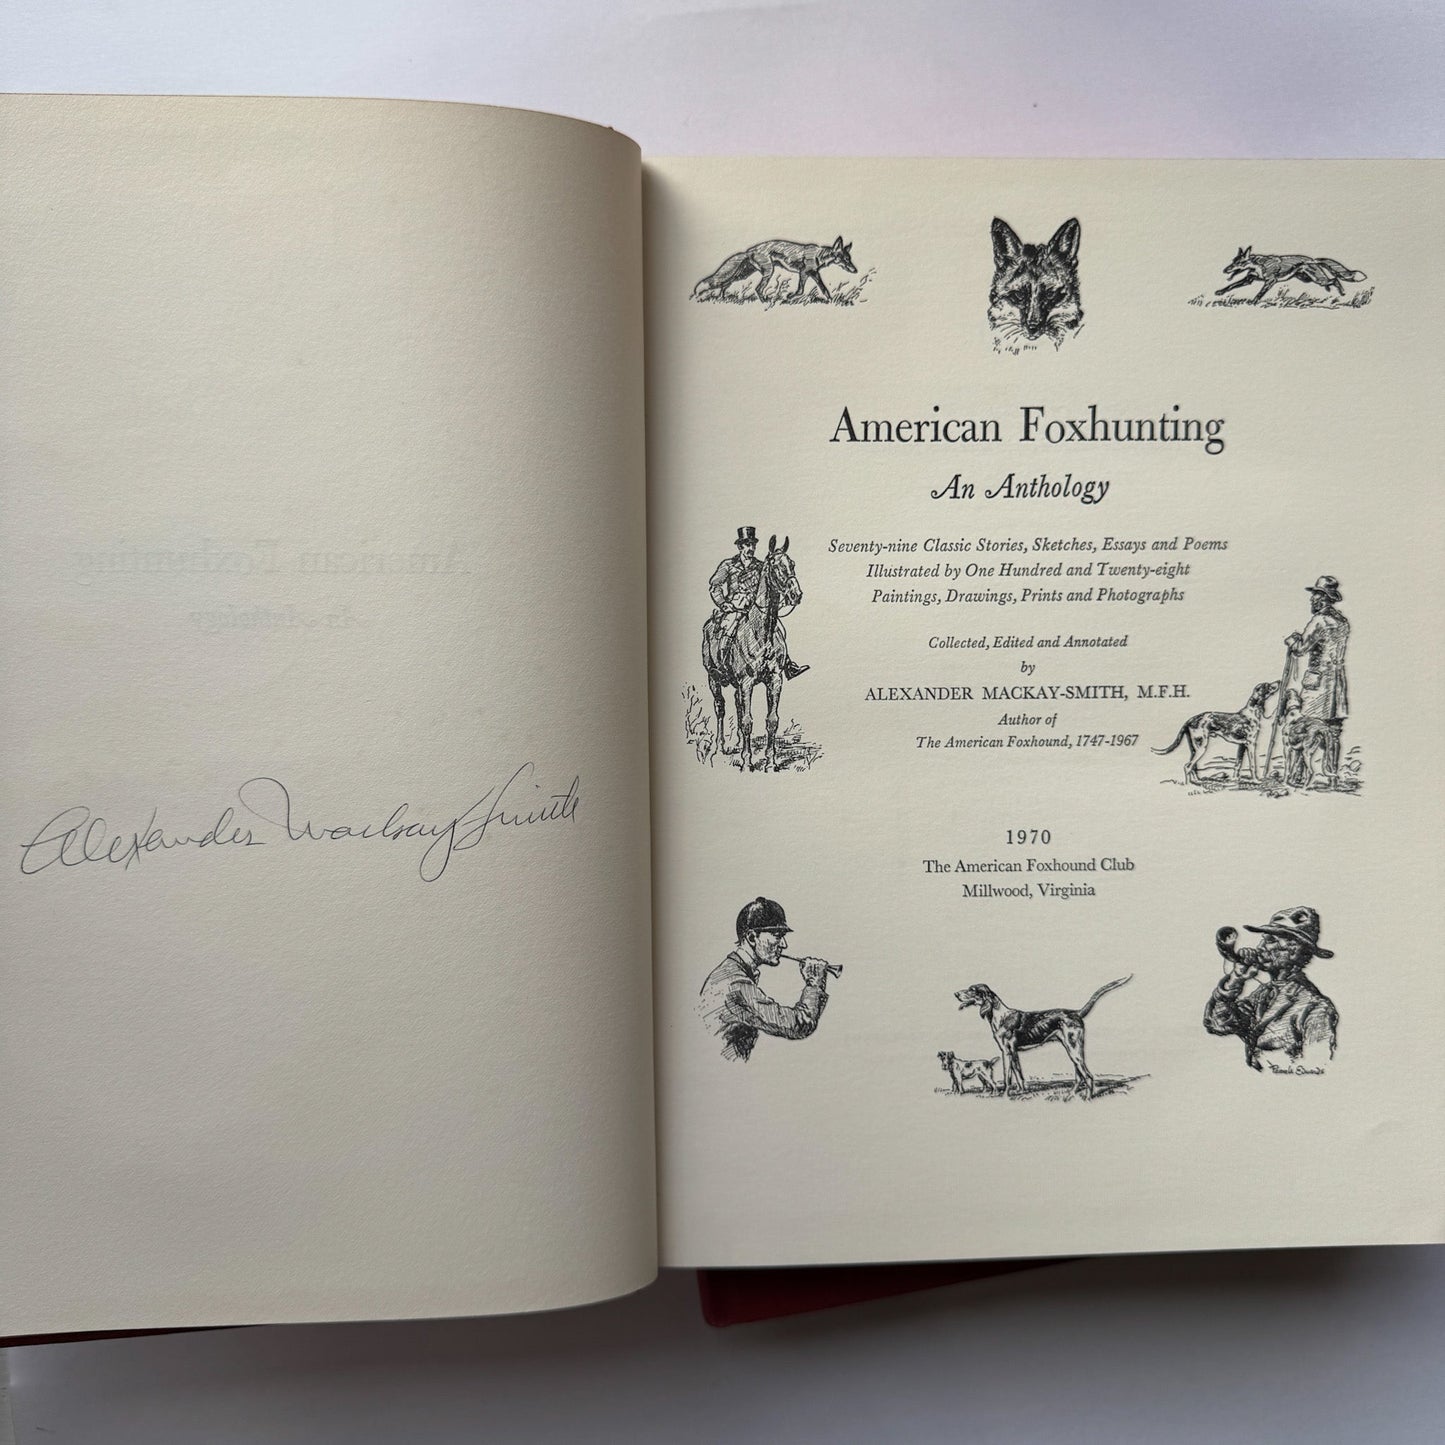 Alexander Mackay-Smith
American Foxhunting
An Anthology
Seventy-nine Classic Stories, Sketches, Essays and Poems
Illustrated by One Hundred and Twenty-eight
Paintings, Drawings, Prints and Photographs
Collected, Edited and Annotated
by
ALEXANDER MACKAY-SMITH, M.F.H.
Author of
The American Foxhound, 1747-1967
1970
The American Foxhound Club
Millwood, Virginia